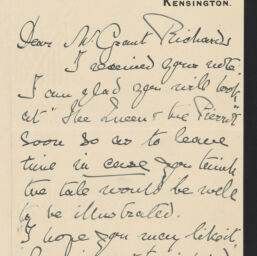 KENSINGTON.
Dear Mr Grant Richards
I received your note
I am glad you will look
at "The Queen & the Pierrot"
soon so as to leave
time in case you think
the tale would be well
to be illustrated.
I hope you may like it,